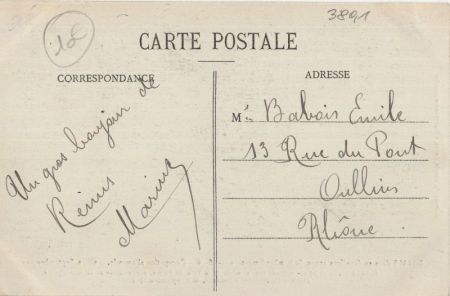 3891
CARTE POSTALE
CORRESPONDANCE
ADRESSE
Un gros bonjour de
Rémus
Marius
Mr Babois Emile
13 Rue du Pont
Oullins
Rhône